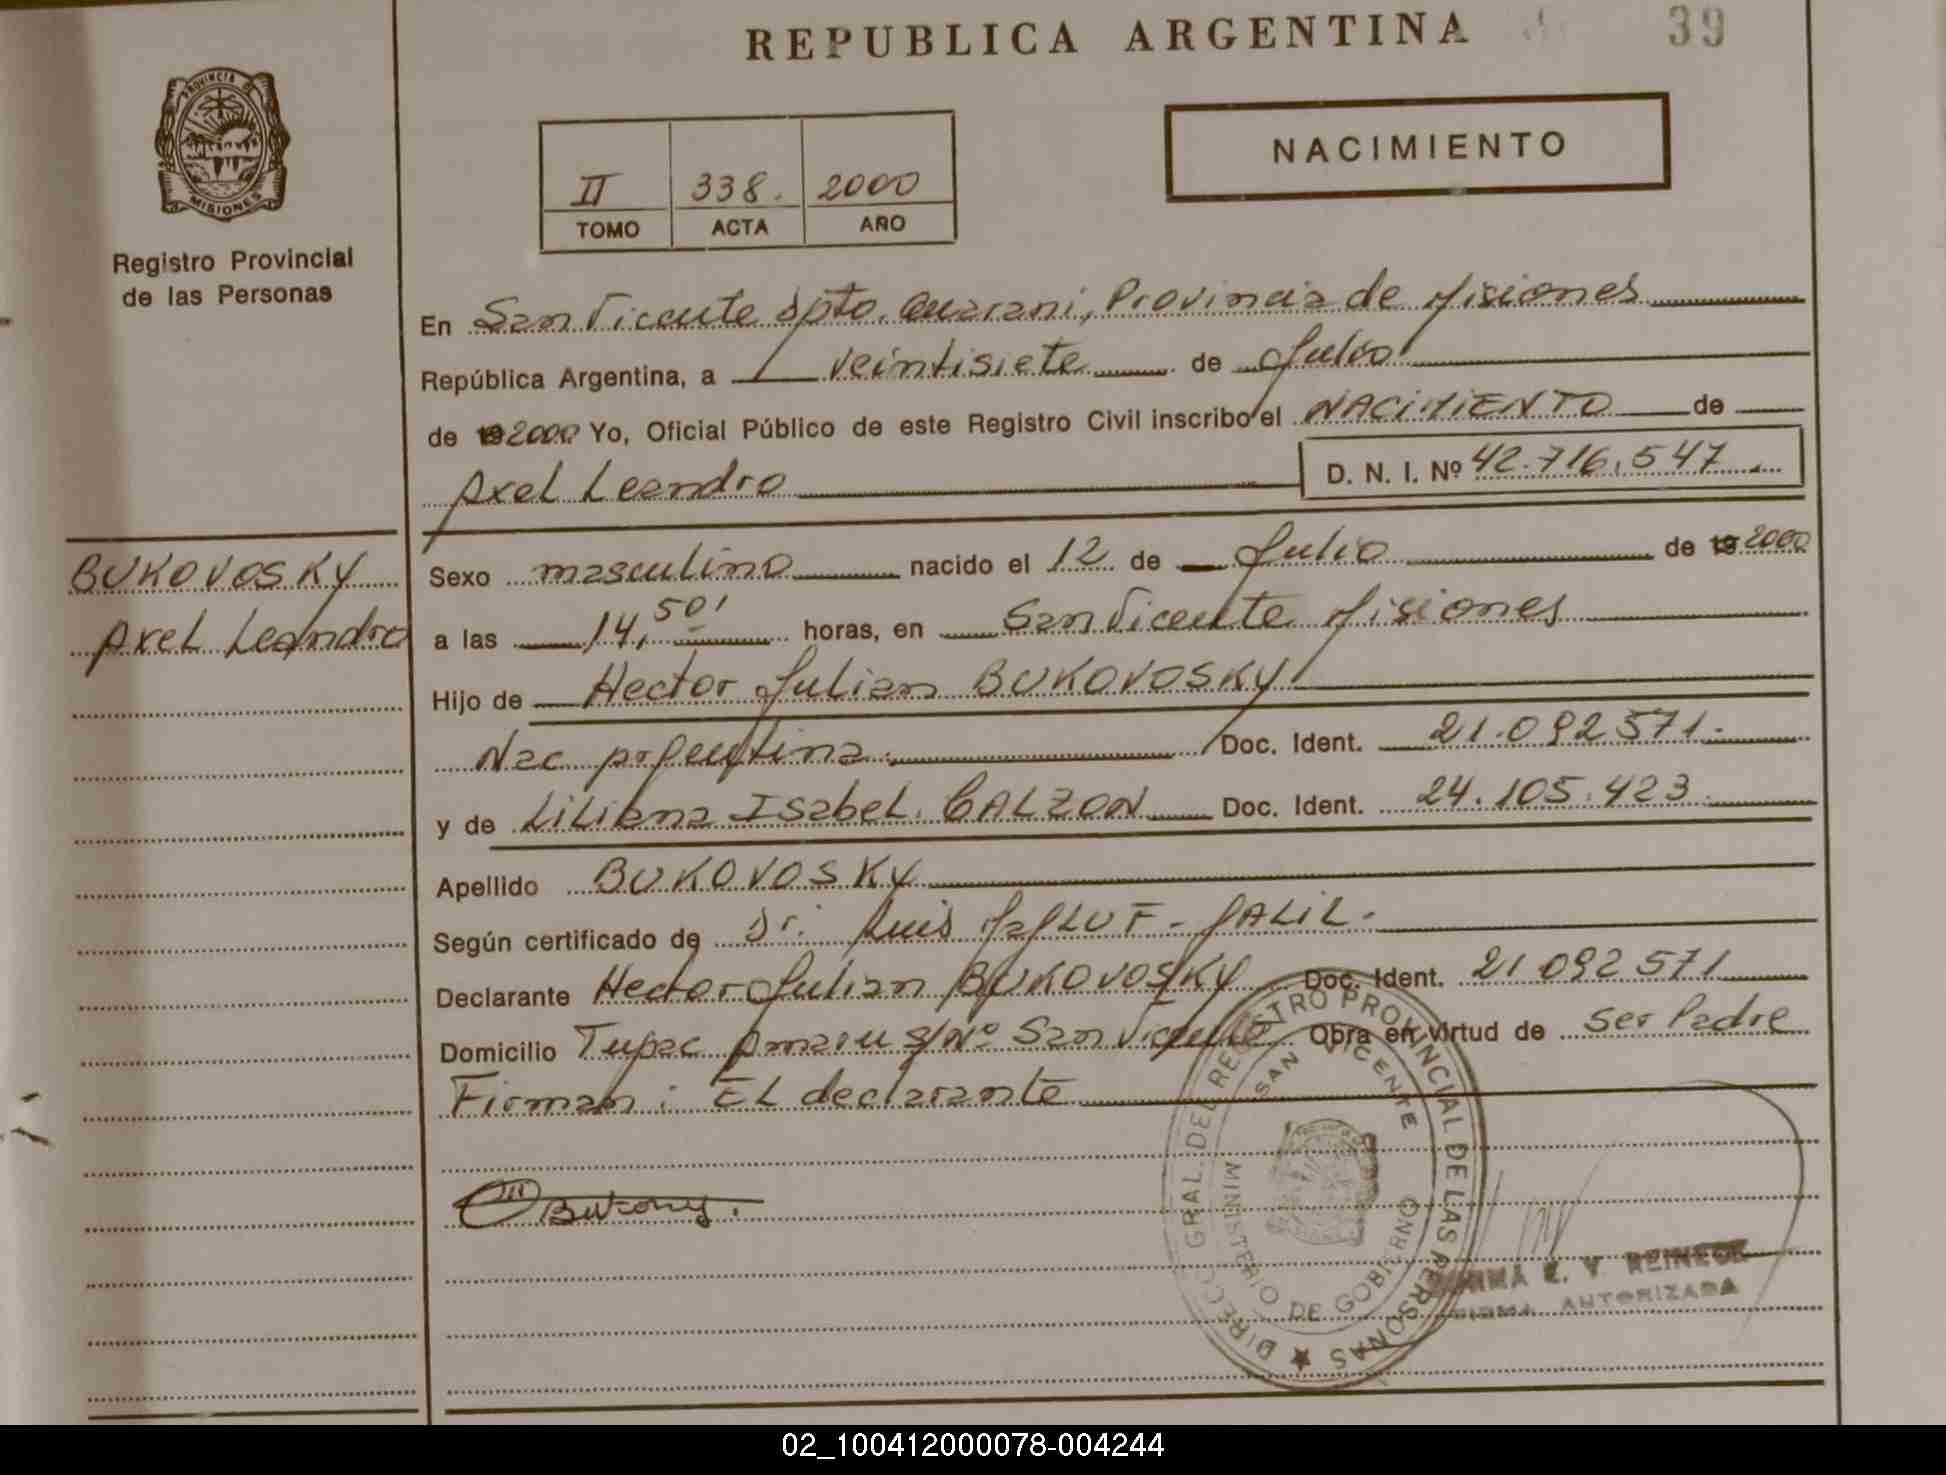 REPUBLICA ARGENTINA
39
PROVINCIA DE
MISIONES
Registro Provincial
de las Personas
II 338. 2000
TOMO ACTA AÑO
NACIMIENTO
En San Vicente Dpto. Guarani, Provincia de Misiones
República Argentina, a veintisiete de Julio
de 19 2000 Yo, Oficial Público de este Registro Civil inscribo el NACIMIENTO de
Axel Leandro D. N. I. Nº 42.716.547
BUKOVOSKY
Axel Leandro
Sexo masculino nacido el 12 de Julio de 19 2000
a las 14,50' horas, en San Vicente Misiones
Hijo de Hector Julian BUKOVOSKY
Nac Argentina. Doc. Ident. 21.092571.
y de Liliana Isabel CALZON Doc. Ident. 24.105.423
Apellido BUKOVOSKY
Según certificado de Dr. Luis - JALIL.
Declarante Hector Julian BUKOVOSKY Doc. Ident. 21 092 571
Domicilio Tupac Amaru s/Nº San Vicente Obra en virtud de ser Padre
Firman: El declarante
DIRECC. GRAL. DEL REGISTRO PROVINCIAL DE LAS PERSONAS
SAN VICENTE
MINISTERIO DE GOBIERNO
NORMA E. V. REINECK
FIRMA AUTORIZADA
02_100412000078-004244